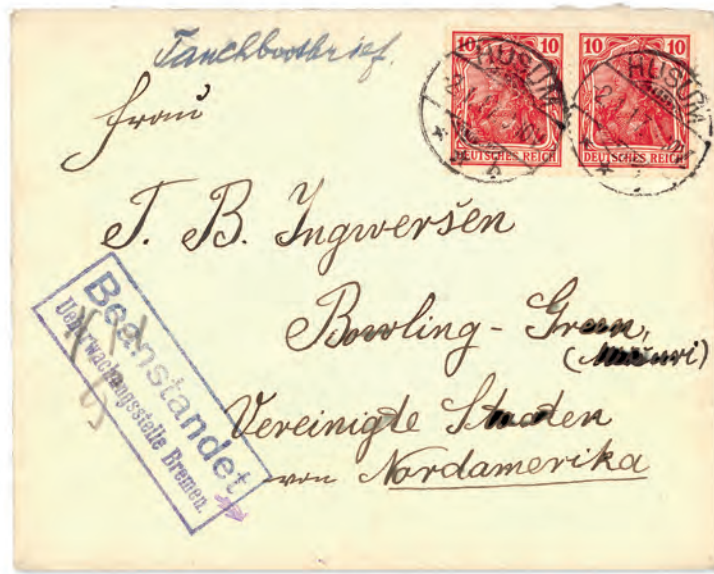 Tauchbootbrief.
10 10 10 10
DEUTSCHES REICH DEUTSCHES REICH
HUSUM HUSUM
Frau
T. B. Ingwersen
Bowling-Green,
(Missouri)
Vereinigte Staaten
von Nordamerika
Beanstandet
Ueberwachungsstelle Bremen.